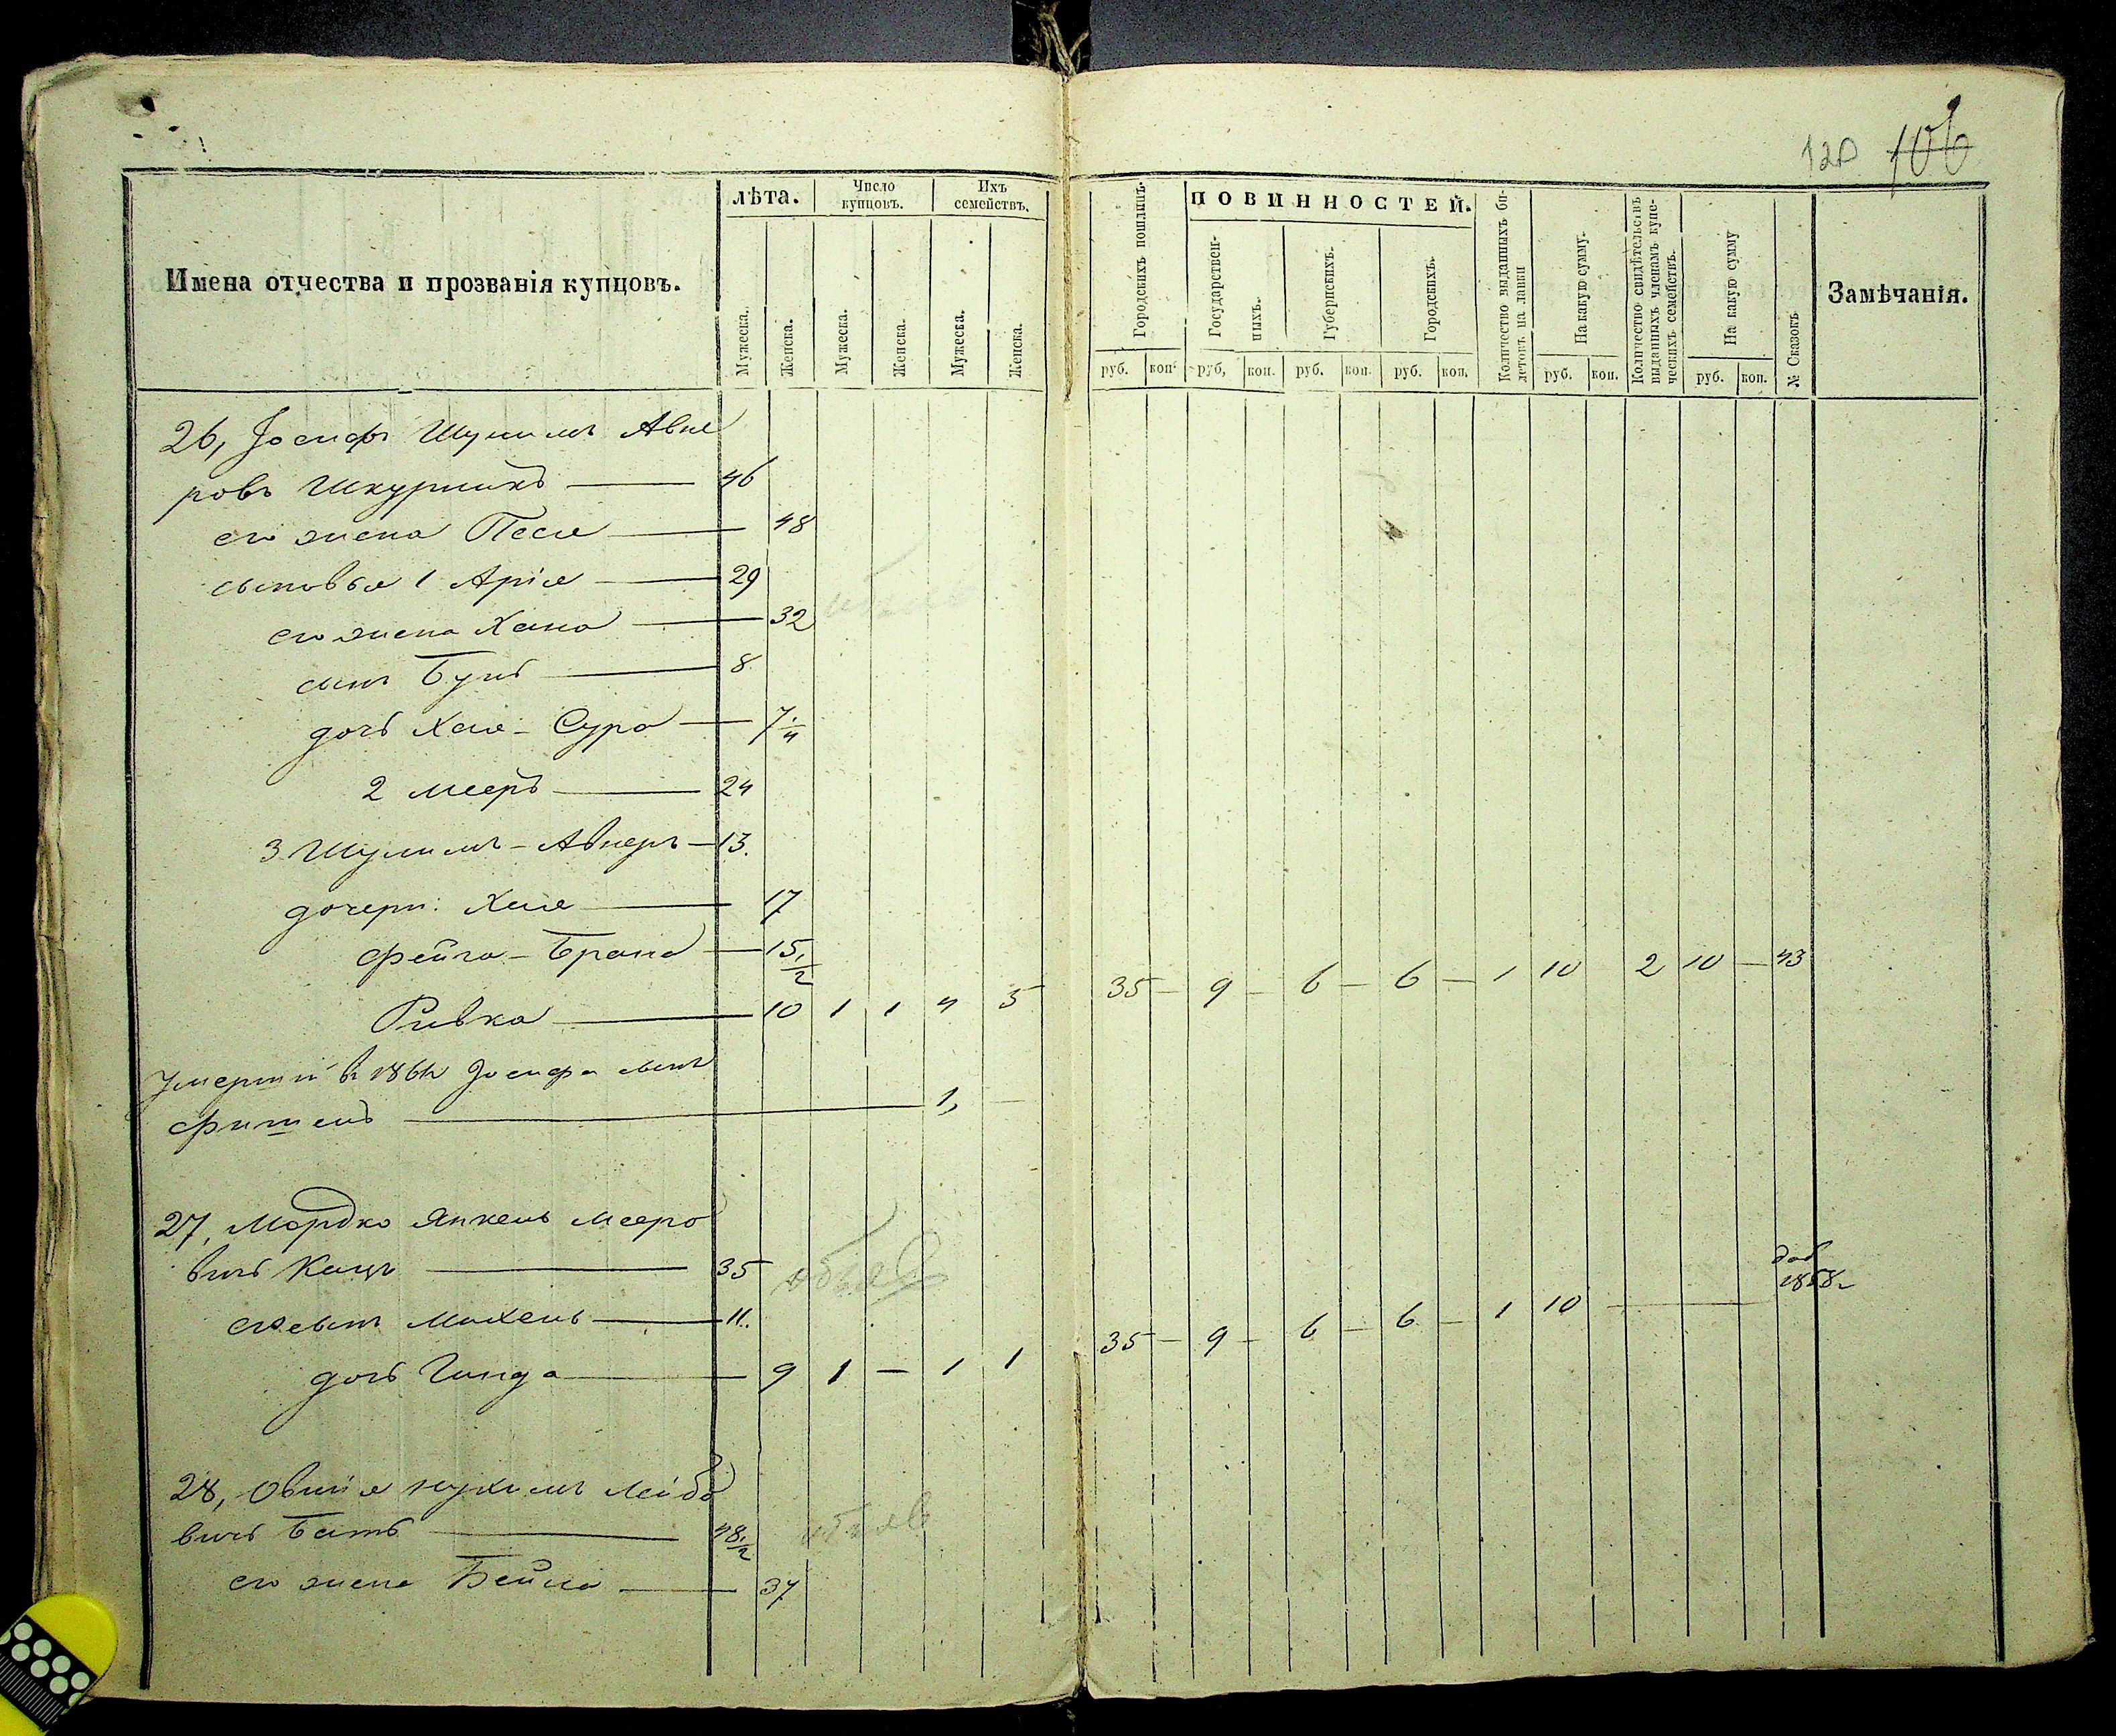 120 106
Имена отчества и прозванія купцовъ.
лѣта.
Мужеска.
Женска.
Число купцовъ.
Мужеска.
Женска.
Ихъ семействъ.
Мужеска.
Женска.
Городскихъ пошлинъ
руб. коп.
ПОВИННОСТЕЙ.
Государствен-
ныхъ.
руб, коп.
Губернскихъ.
руб. коп.
Городскихъ.
руб. коп.
Количество выданныхъ би-
летовъ на лавки
На какую сумму.
руб. коп.
Количество свидѣтельствъ
выданныхъ членамъ купе-
ческихъ семействъ.
На какую сумму
руб. коп.
№ Сказокъ
Замѣчанія.
26, Іосифъ Шулимъ Авне
ровъ Шкурникъ — 46
его жена Песя — 48
сыновья 1 Арія — 29
его жена Хана — 32
сынъ Буня — 8
дочь Хая-Сура — 7 1/4
2 Мееръ — 24
3 Шулимъ-Авнеръ — 13.
дочери: Хая — 17
Фейга-Брана — 15 1/2
Ривка — 10 1 1 4 5 35 — 9 — 6 — 6 — 1 10 2 10 — 43
Умершій в 1861 Іосифа сынъ
Фишель — 1,
27, Мордко Янкель Мееро
вичъ Кацъ — 35
его сынъ Михель — 11.
дочь Гинда — 9 1 — 1 1 35 — 9 — 6 — 6 — 1 10 — доб 1858
28, Овшія Нухимъ Лейбо
вичъ Батъ — 48 1/2
его жена Бейла — 37